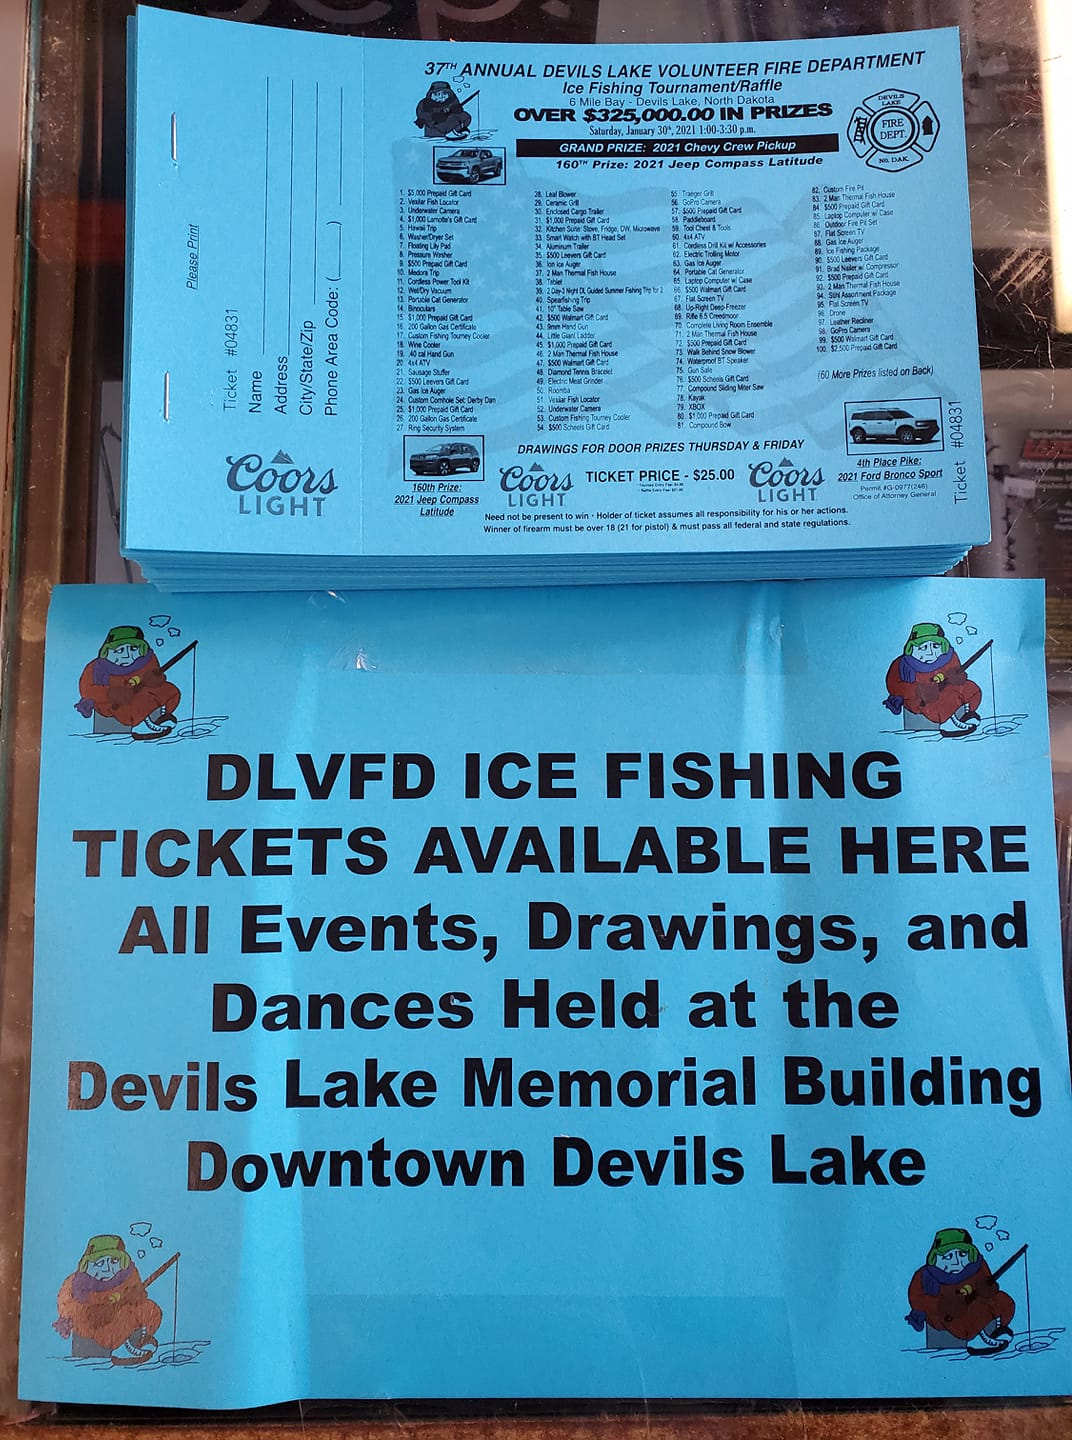 37TH ANNUAL DEVILS LAKE VOLUNTEER FIRE DEPARTMENT
Ice Fishing Tournament/Raffle
6 Mile Bay - Devils Lake, North Dakota
OVER $325,000.00 IN PRIZES
Saturday, January 30th, 2021 1:00-3:30 p.m.
GRAND PRIZE: 2021 Chevy Crew Pickup
160TH Prize: 2021 Jeep Compass Latitude
DEVILS LAKE
FIRE DEPT.
NO. DAK.
Please Print
Ticket #04831
Name
Address
City/State/Zip
Phone Area Code: ( )
1. $5,000 Prepaid Gift Card
2. Vexilar Fish Locator
3. Underwater Camera
4. $1,000 Lamotte's Gift Card
5. Hawaii Trip
6. Washer/Dryer Set
7. Floating Lily Pad
8. Pressure Washer
9. $500 Prepaid Gift Card
10. Medora Trip
11. Cordless Power Tool Kit
12. Wet/Dry Vacuum
13. Portable Cat Generator
14. Binoculars
15. $1,000 Prepaid Gift Card
16. 200 Gallon Gas Certificate
17. Custom Fishing Tourney Cooler
18. Wine Cooler
19. .40 cal Hand Gun
20. 4x4 ATV
21. Sausage Stuffer
22. $500 Leevers Gift Card
23. Gas Ice Auger
24. Custom Cornhole Set: Derby Dan
25. $1,000 Prepaid Gift Card
26. 200 Gallon Gas Certificate
27. Ring Security System
28. Leaf Blower
29. Ceramic Grill
30. Enclosed Cargo Trailer
31. $1,000 Prepaid Gift Card
32. Kitchen Suite: Stove, Fridge, DW, Microwave
33. Smart Watch with BT Head Set
34. Aluminum Trailer
35. $500 Leevers Gift Card
36. Ion Ice Auger
37. 2 Man Thermal Fish House
38. Tablet
39. 2 Day-3 Night DL Guided Summer Fishing Trip for 2
40. Spearfishing Trip
41. 10" Table Saw
42. $500 Walmart Gift Card
43. 9mm Hand Gun
44. Little Giant Ladder
45. $1,000 Prepaid Gift Card
46. 2 Man Thermal Fish House
47. $500 Walmart Gift Card
48. Diamond Tennis Bracelet
49. Electric Meat Grinder
50. Roomba
51. Vexilar Fish Locator
52. Underwater Camera
53. Custom Fishing Tourney Cooler
54. $500 Scheels Gift Card
55. Traeger Grill
56. GoPro Camera
57. $500 Prepaid Gift Card
58. Paddleboard
59. Tool Chest & Tools
60. 4x4 ATV
61. Cordless Drill Kit w/ Accessories
62. Electric Trolling Motor
63. Gas Ice Auger
64. Portable Cat Generator
65. Laptop Computer w/ Case
66. $500 Walmart Gift Card
67. Flat Screen TV
68. Up-Right Deep-Freezer
69. Rifle 6.5 Creedmoor
70. Complete Living Room Ensemble
71. 2 Man Thermal Fish House
72. $500 Prepaid Gift Card
73. Walk Behind Snow Blower
74. Waterproof BT Speaker
75. Gun Safe
76. $500 Scheels Gift Card
77. Compound Sliding Miter Saw
78. Kayak
79. XBOX
80. $1,000 Prepaid Gift Card
81. Compound Bow
82. Custom Fire Pit
83. 2 Man Thermal Fish House
84. $500 Prepaid Gift Card
85. Laptop Computer w/ Case
86. Outdoor Fire Pit Set
87. Flat Screen TV
88. Gas Ice Auger
89. Ice Fishing Package
90. $500 Leevers Gift Card
91. Brad Nailer w/ Compressor
92. $500 Prepaid Gift Card
93. 2 Man Thermal Fish House
94. Stihl Assortment Package
95. Flat Screen TV
96. Drone
97. Leather Recliner
98. GoPro Camera
99. $500 Walmart Gift Card
100. $2,500 Prepaid Gift Card
(60 More Prizes listed on Back)
Ticket #04831
DRAWINGS FOR DOOR PRIZES THURSDAY & FRIDAY
Coors
LIGHT
160th Prize:
2021 Jeep Compass
Latitude
Coors
LIGHT
TICKET PRICE - $25.00
Coors
LIGHT
4th Place Pike:
2021 Ford Bronco Sport
Permit #G-0977(246)
Office of Attorney General
Need not be present to win • Holder of ticket assumes all responsibility for his or her actions.
Winner of firearm must be over 18 (21 for pistol) & must pass all federal and state regulations.
DLVFD ICE FISHING
TICKETS AVAILABLE HERE
All Events, Drawings, and
Dances Held at the
Devils Lake Memorial Building
Downtown Devils Lake